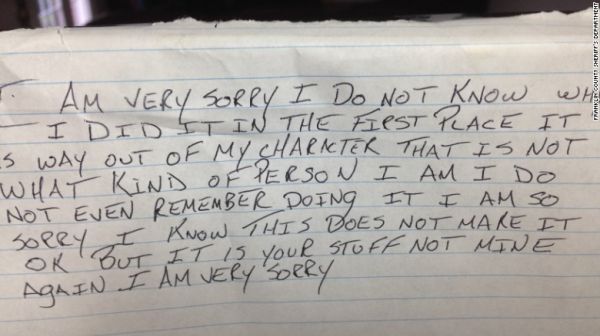 I. AM VERY SORRY I DO NOT KNOW WH
I DID IT IN THE FIRST PLACE IT
S WAY OUT OF MY CHARICTER THAT IS NOT
WHAT KIND OF PERSON I AM I DO
NOT EVEN REMEMBER DOING IT I AM SO
SORRY I KNOW THIS DOES NOT MAKE IT
OK BUT IT IS YOUR STUFF NOT MINE
AGAIN I AM VERY SORRY
FRANKLIN COUNTY SHERIFF'S DEPARTMENT